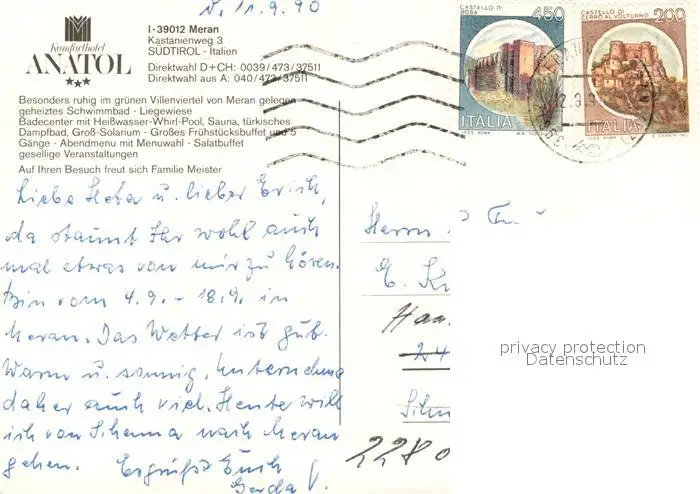 11.9.90
Komforthotel
ANATOL
I-39012 Meran
Kastanienweg 3
SÜDTIROL - Italien
Direktwahl D+CH: 0039/473/37511
Direktwahl aus A: 040/473/37511
Besonders ruhig im grünen Villenviertel von Meran gelegen
geheiztes Schwimmbad - Liegewiese
Badecenter mit Heißwasser-Whirl-Pool, Sauna, türkisches
Dampfbad, Groß-Solarium - Großes Frühstücksbuffet und 5
Gänge - Abendmenu mit Menuwahl - Salatbuffet
gesellige Veranstaltungen
Auf Ihren Besuch freut sich Familie Meister
CASTELLO DI
BOSA
450
ITALIA
CASTELLO DI
CERRO AL VOLTURNO
200
ITALIA
Liebe Heta u. lieber Erich,
da staunt Ihr wohl auch
mal etwas von mir zu hören.
Bin vom 4.9. - 18.9. in
Meran. Das Wetter ist gut.
Warm u. sonnig. Unternehme
daher auch viel. Heute will
ich von Schenna nach Meran
gehen. Es grüßt Euch
Gerda
Herrn
E.
24
2280
privacy protection
Datenschutz